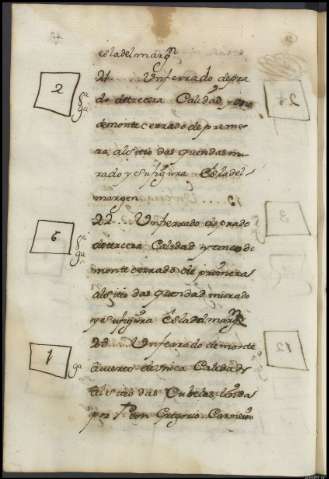 es la del marg.n
21 .... Un ferrado de pra
do de tercera Calidad y
de monte cerrado de prime
ra, al sitio das quendas mu
rado y su figura Es la del
margen
22 ... Un ferrado de prado
de tercera Calidad y cinco de
monte cerrados de primera
al sitio das quendas murado
y su figura Es la del marg.n
23 .. Un ferrado de monte
avierto de unica Calidad
al sitio das Cubelas linda
por Gregorio
2
6
1